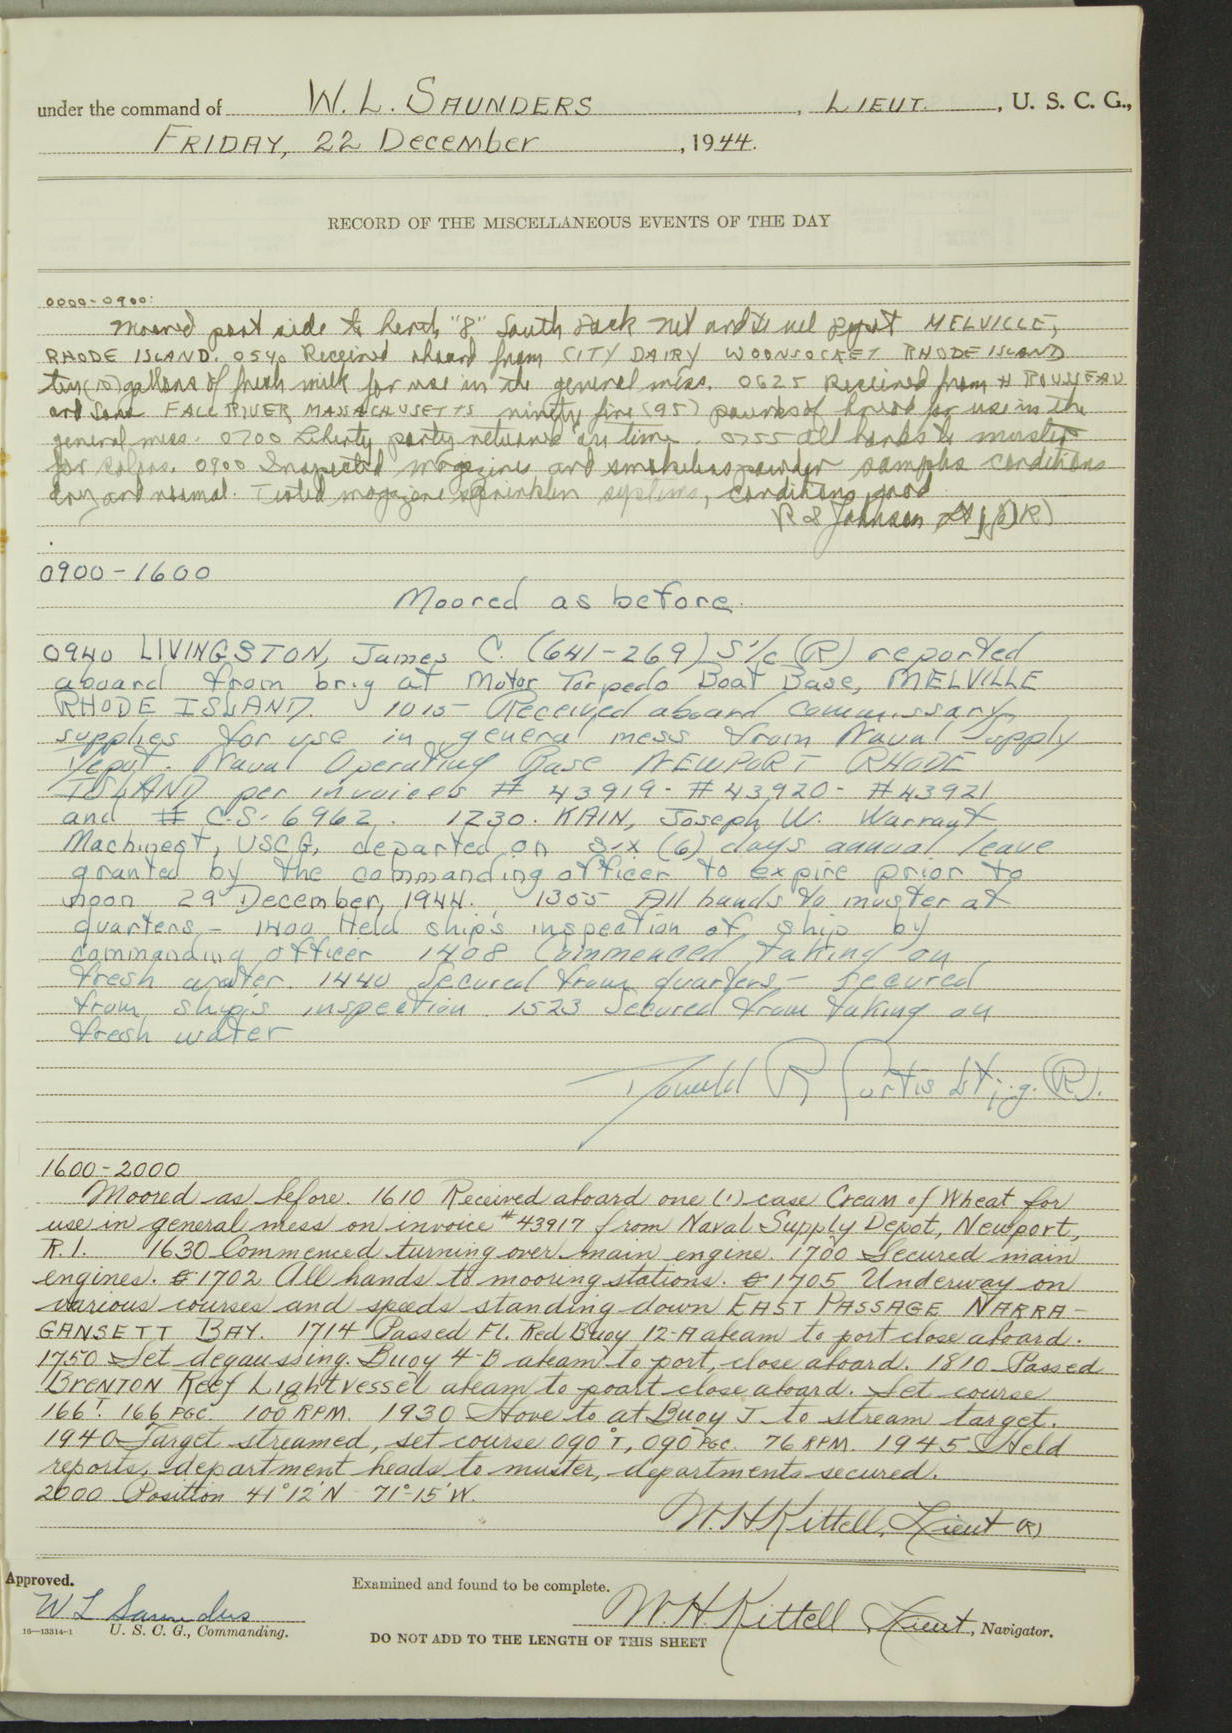 under the command of W. L. SAUNDERS, LIEUT., U. S. C. G.,
FRIDAY, 22 December, 1944.
RECORD OF THE MISCELLANEOUS EVENTS OF THE DAY
0000-0900:
Moored port side to berth "8" South Dock Net and Fuel Depot MELVILLE,
RHODE ISLAND. 0540 Received aboard from CITY DAIRY WOONSOCKET RHODE ISLAND
ten (10) gallons of fresh milk for use in the general mess. 0625 Received from H ROUSSEAU
and Sons FALL RIVER, MASSACHUSETTS ninety five (95) pounds of bread for use in the
general mess. 0700 Liberty party returned on time. 0755 All hands to muster
for Colors. 0900 Inspected magazines and smokeless powder samples conditions
dry and normal. Tested magazine sprinklin systems, conditions good
R S Johnson Lt. j.g. (R)
0900-1600
Moored as before.
0940 LIVINGSTON, James C. (641-269) S1/c (R) reported
aboard from brig at Motor Torpedo Boat Base, MELVILLE
RHODE ISLAND. 1015 Received aboard commissary
supplies for use in general mess from Naval Supply
Depot. Naval Operating Base NEWPORT RHODE
ISLAND per invoices # 43919 - # 43920 - # 43921
and # C.S. 6962. 1230. KAIN, Joseph W. Warrant
Machinest, USCG, departed on six (6) days annual leave
granted by the commanding officer to expire prior to
noon 29 December, 1944. 1355 All hands to muster at
quarters - 1400 Held ship's inspection of ship by
commanding officer 1408 Commenced taking on
fresh water. 1440 Secured from quarters - secured
from ship's inspection. 1523 Secured from taking on
fresh water
Donald R Curtis Lt. j.g. (R).
1600-2000
Moored as before. 1610 Received aboard one (1) case Cream of Wheat for
use in general mess on invoice #43917 from Naval Supply Depot, Newport,
R.I. 1630 Commenced turning over main engine. 1700 Secured main
engines. 1702 All hands to mooring stations. 1705 Underway on
various courses and speeds standing down EAST PASSAGE NARRA-
GANSETT BAY. 1714 Passed Fl. Red Buoy 12-A abeam to port close aboard.
1750 Set degaussing. Buoy 4-B abeam to port, close aboard. 1810 Passed
BRENTON Reef Lightvessel abeam to poart close aboard. Set course
166 T. 166 PGC. 100 RPM. 1930 Hove to at Buoy J to stream target.
1940 Target streamed, set course 090°T, 090 PGC. 76 RPM. 1945 Held
reports, department heads to muster, departments secured.
2000 Position 41°12'N 71°15'W.
W. H Kittell, Lieut (R)
Approved.
Examined and found to be complete.
W L Saunders
W. H. Kittell Lieut, Navigator.
16—13314-1 U. S. C. G., Commanding.
DO NOT ADD TO THE LENGTH OF THIS SHEET